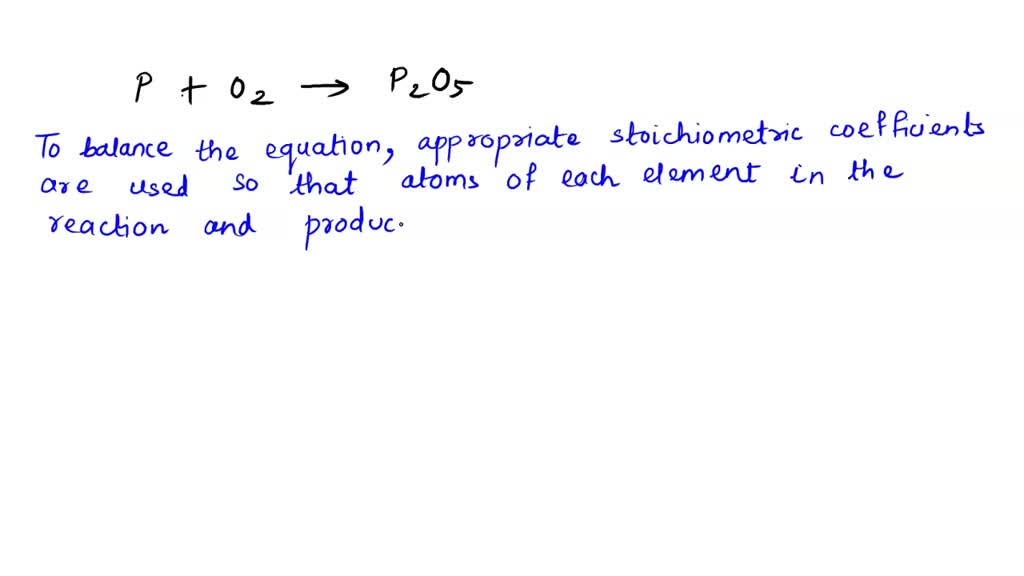 P + O2 → P2O5
To balance the equation, appropriate stoichiometric coefficients
are used so that atoms of each element in the
reaction and produc